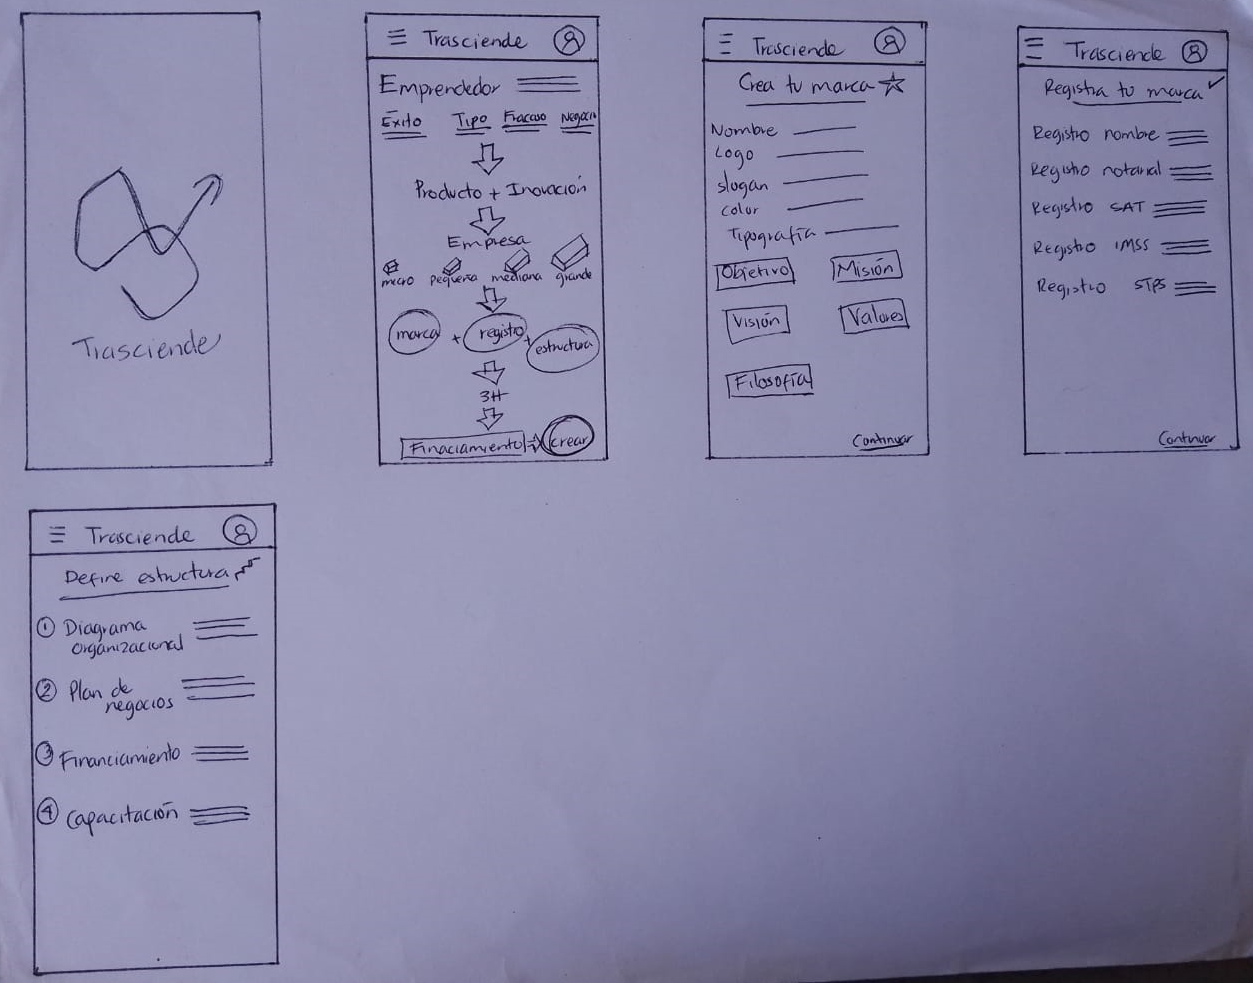 Trasciende
Trasciende
Emprendedor
Exito Tipo Fracaso Negocio
Producto + Inovación
Empresa
micro pequeña mediana grande
marca + registro + estructura
3H
Finaciamiento crear
Trasciende
Crea tu marca
Nombre
Logo
slogan
color
Tipografía
Objetivo Misión
Visión Valores
Filosofía
Continuar
Trasciende
Registra tu marca
Registro nombre
Registro notarial
Registro SAT
Registro IMSS
Registro STPS
Continuar
Trasciende
Define estructura
1 Diagrama
organizacional
2 Plan de
negocios
3 Financiamiento
4 Capacitación